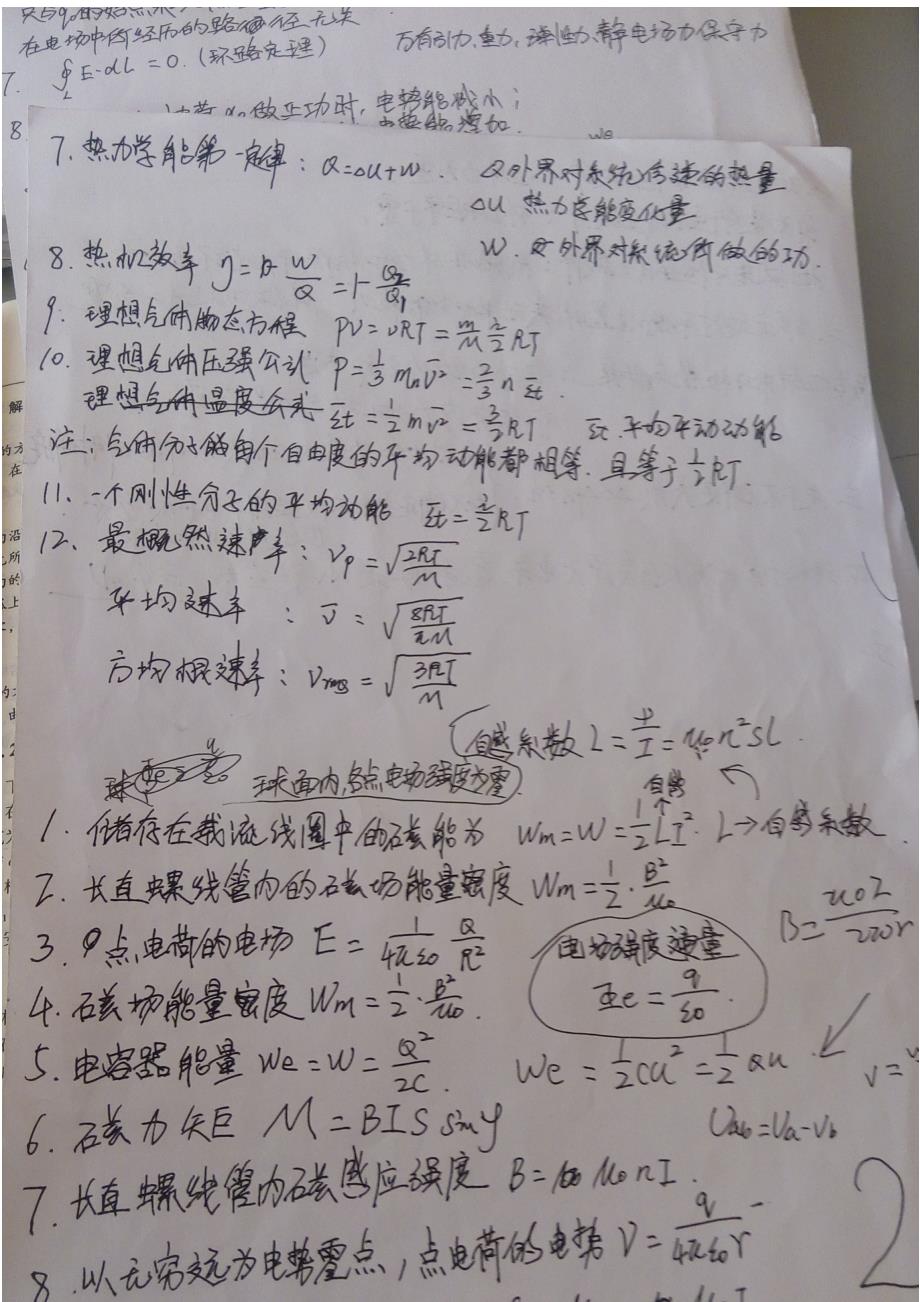 在电场中所经历的路径无关
万有引力、重力、弹性力、静电场力保守力
7. ∮L E·dL = 0. (环路定理)
做正功时, 电势能减小;
电势能增加.
8
7. 热力学能第一定律: Q=ΔU+W. Q外界对系统传递的热量
ΔU 热力学能变化量
W. 外界对系统所做的功.
8. 热机效率 η= W/Q =1-Q2/Q1
9. 理想气体物态方程 PV=νRT=m/M RT
10. 理想气体压强公式 P=1/3 mnv̄²=2/3 n ε̄t.
理想气体温度公式 ε̄t=1/2 mv̄²=3/2RT ε̄t.平均平动动能
注: 气体分子的每个自由度的平均动能都相等. 且等于1/2RT.
11. 一个刚性分子的平均动能 ε̄t=i/2RT
12. 最概然速率: Vp=√(2RT/M)
平均速率: v̄=√(8RT/πM)
方均根速率: Vrms=√(3RT/M)
自感系数 L=Ψ/I=μ0n²SL.
球面内,各点电场强度为零
自感
1. 储存在载流线圈中的磁能为 Wm=W=1/2LI². L→自感系数
2. 长直螺线管内的磁场能量密度 Wm=1/2·B²/μ0
3. 点电荷的电场 E=1/4πε0 Q/R²
电场强度通量
Φe=q/ε0.
B=μ0I/2πr
4. 磁场能量密度 Wm=1/2·B²/μ0.
5. 电容器能量 We=W=Q²/2C. We=1/2CU²=1/2QU
V=
6. 磁力矢巨 M=BIS sinφ
Uab=Va-Vb
7. 长直螺线管内磁感应强度 B=μ0nI.
8. 以无穷远为电势零点, 点电荷的电势 V=q/4πε0r
2